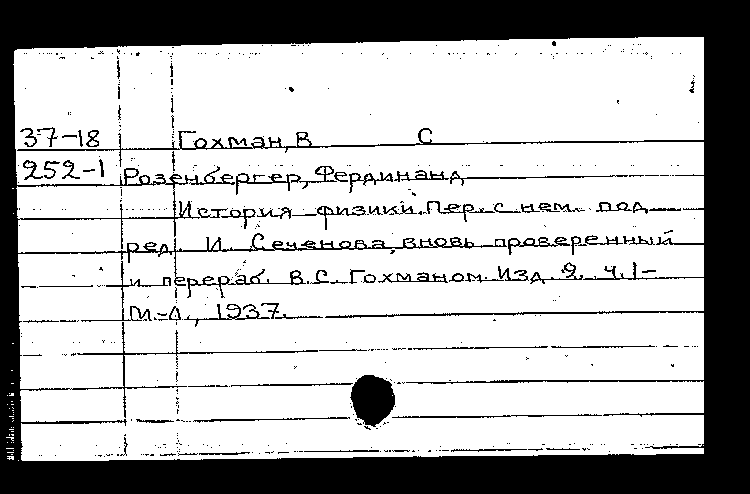 37-18 Гохман, В С
252-1 Розенбергер, Фердинанд
История физики. Пер. с нем. под
ред. И. Сеченова, вновь проверенный
и перераб. В.С. Гохманом. Изд. 2. ч. I-
М.-Л., 1937.